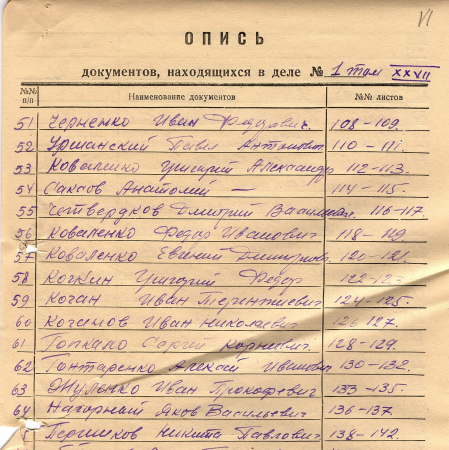 VI
ОПИСЬ
документов, находящихся в деле № 1 том XXVII
№№ п/п Наименование документов №№ листов
51 Черненко Иван Федорович. 108-109.
52 Урманский Павел Антонович 110-111.
53 Коваленко Григорий Александр 112-113.
54 Саксов Анатолий — 114-115.
55 Четвердков Дмитрий Василиев. 116-117.
56 Коваленко Федор Иванович 118-119
57 Коваленко Евгений Дмитриев 120-121.
58 Кочкин Григорий Федор 122-123
59 Коган Иван Терентиевич 124-125.
60 Коганов Иван Николаевич 126-127.
61 Топкало Сергий Корниевич. 128-129.
62 Гонтаренко Алексей Иванович 130-132.
63 Жуленко Иван Прокофевич 133-135.
64 Нагорный Яков Васильевич 136-137
Никита Павлович 138-142.